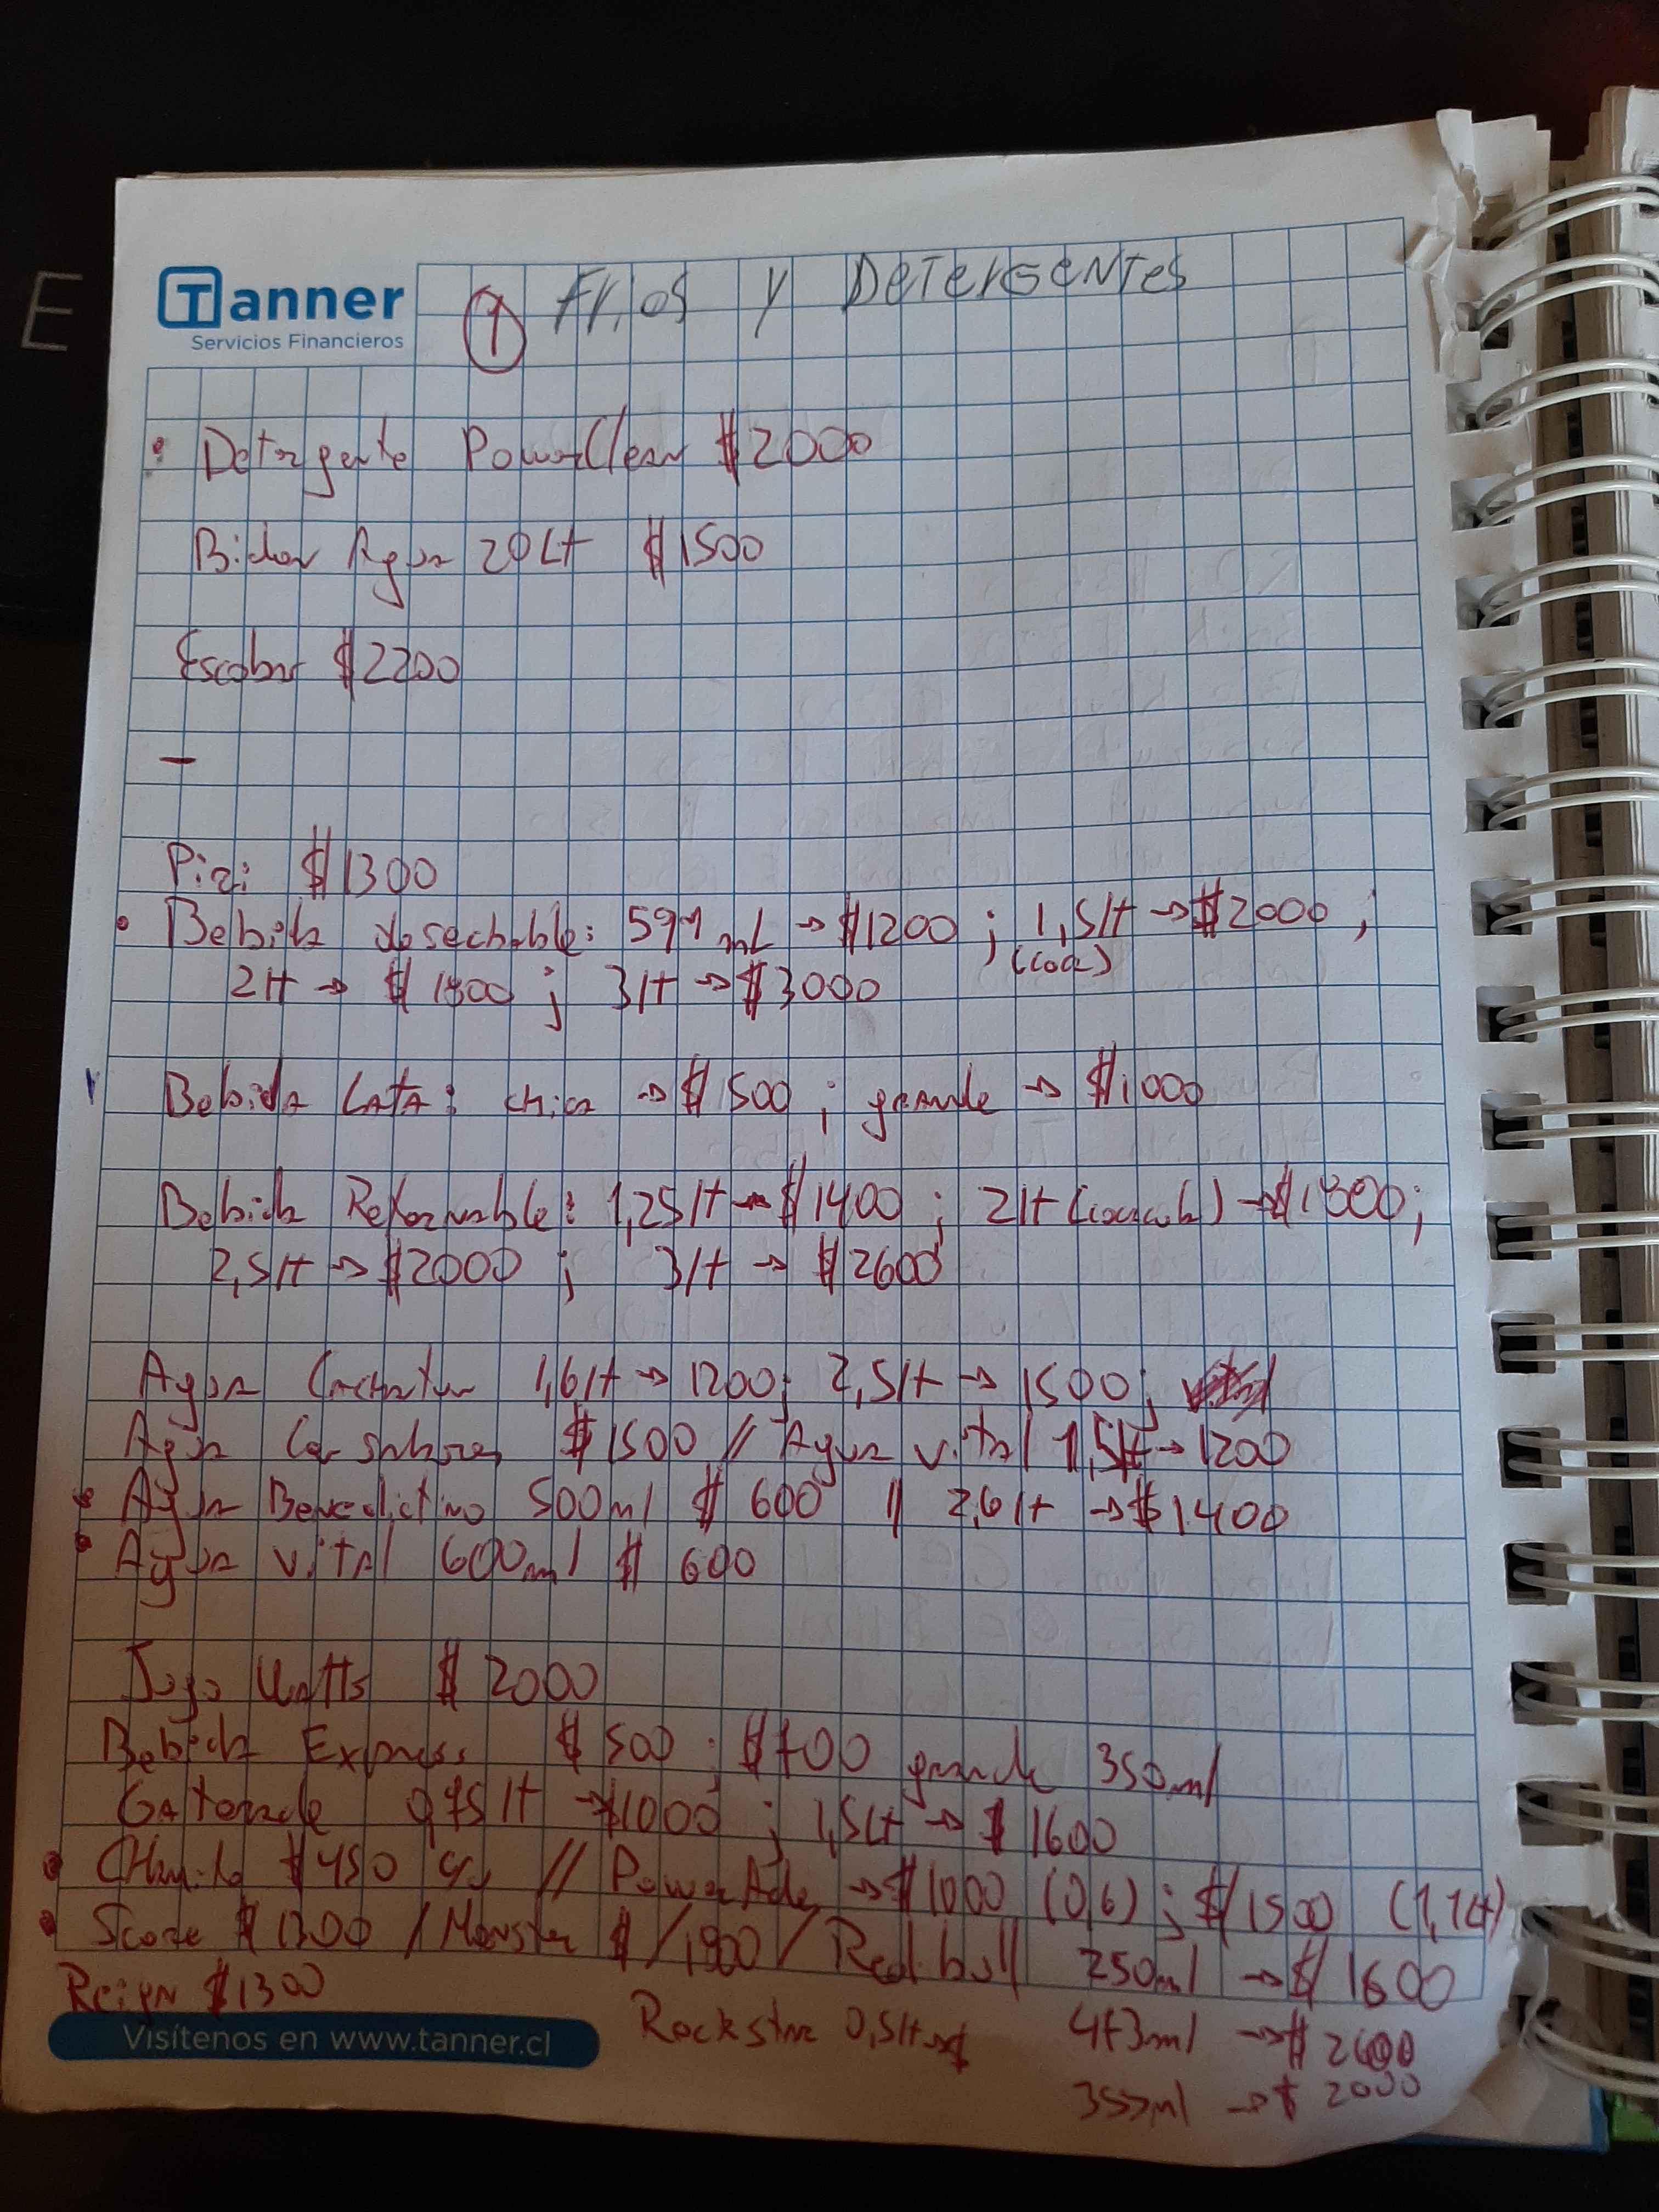 E
Tanner
Servicios Financieros
1 Fríos y Detergentes
Detergente PowerClean $2000
Bidon Agua 20Lt $1500
Escobas $2200
Pizi $1300
Bebida desechable: 591 mL → $1200 ; 1,5lt → $2000 ;
(coca)
2lt → $ 1800 ; 3lt → $3000
Bebida Lata: chica → $ 500 ; grande → $1000
Bebida Retornable: 1,25lt → $1400 ; 2lt → $1800;
2,5lt → $2000 ; 3lt → $2600
Agua Cachantun 1,6lt → 1200; 2,5lt → 1500;
Agua $1500 // Agua vital 1,5lt → 1200
Agua Benedictino 500ml $ 600 // 2,6lt → $1.400
Agua vital 600ml $ 600
Jugo Watts $ 2000
Bebida Express $ 500 ; $700 grande 350ml
Gatorade 0,75lt → $1000 ; 1,5Lt → $ 1600
Chamito $450 // PowerAde → $1000 (0,6) ; $1500 (1,1lt)
Score $1300 / Monster $/1900 / Red bull 250ml → $ 1600
Reign $1300
Rockstar 0,5lt → $ 473ml → $ 2600
355ml → $ 2000
Visítenos en www.tanner.cl